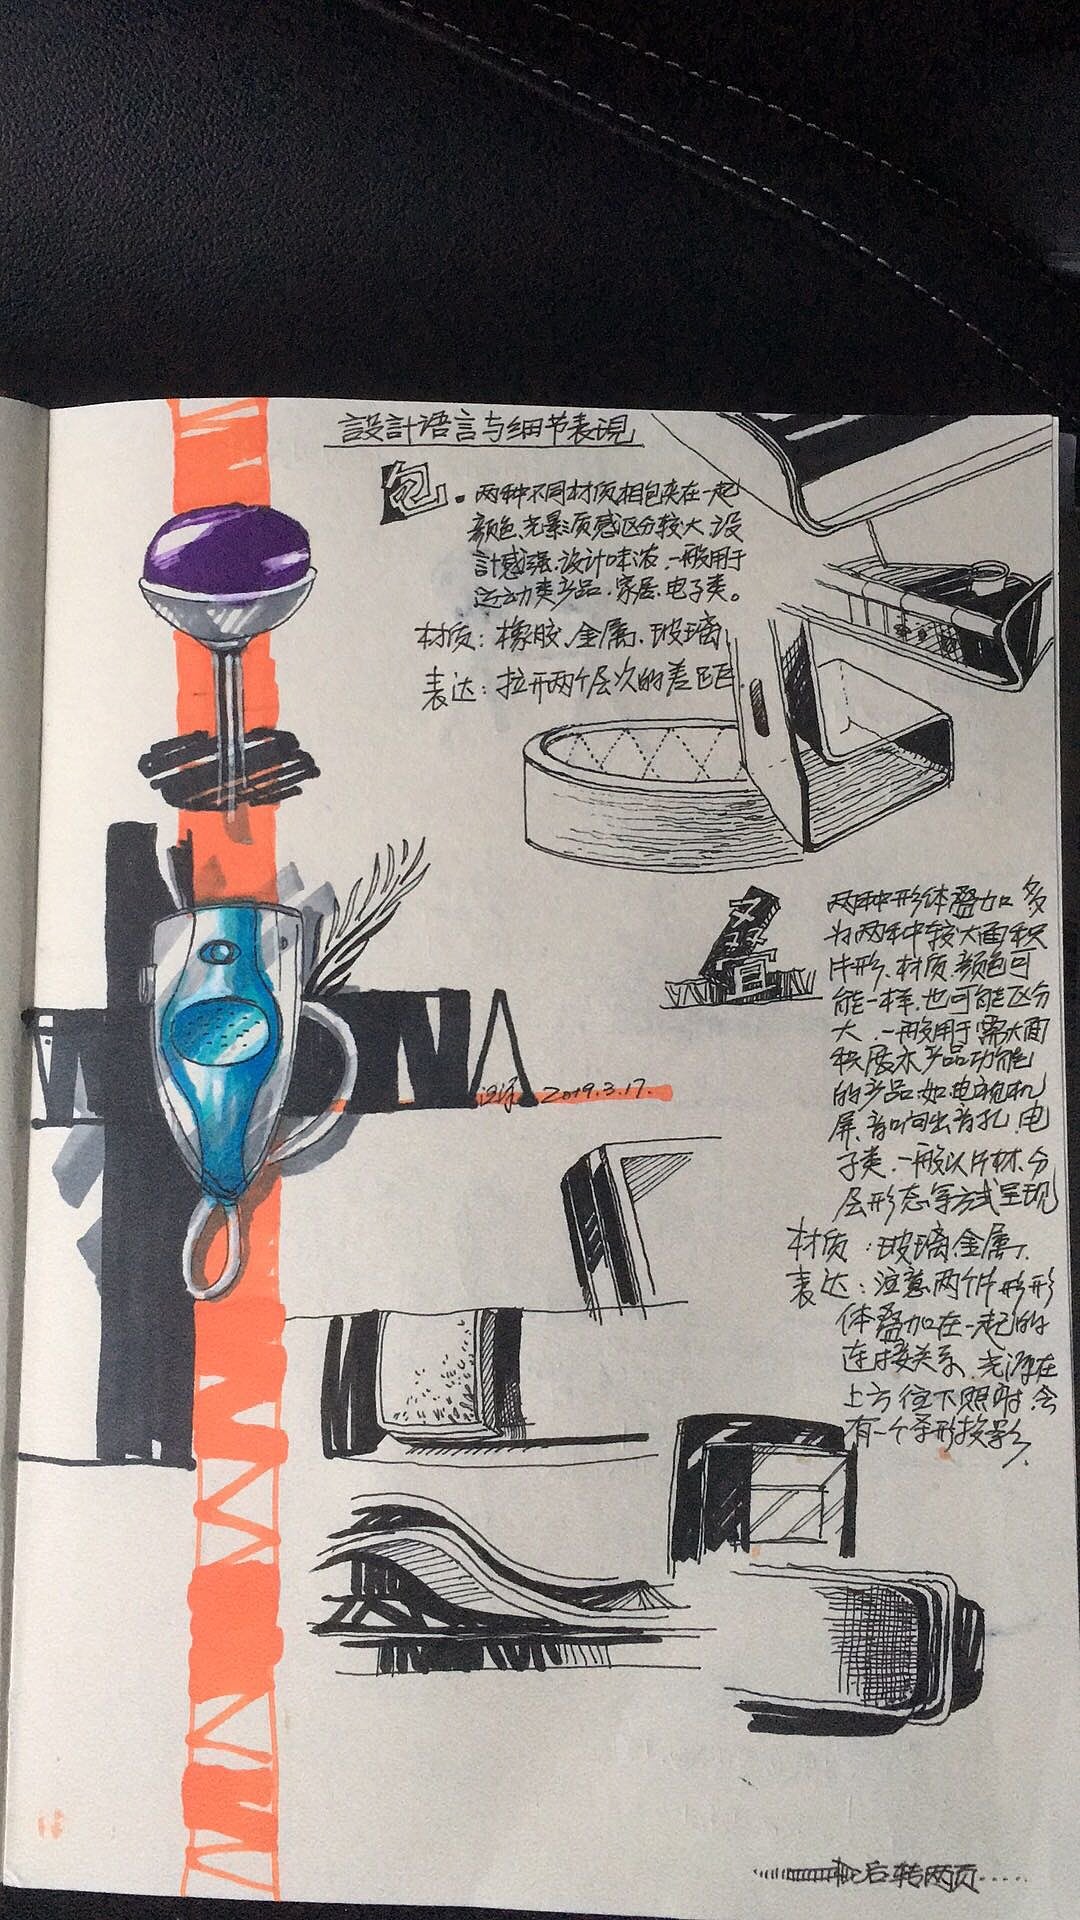 設計语言与细节表現
包。两种不同材质相包夹在一起
颜色、光影、质感区分较大、设
計感强、设计味浓、一般用于
运动类产品、家居、电子类。
材质：橡胶、金属、玻璃
表达：拉开两个层次的差距
叠
两种形体叠加、多
为两种较大面积
片形、材质、颜色可
能一样、也可能区分
大、一般用于需大面
积展示产品功能
的产品、如电视机
屏、音响出音孔、电
子类、一般以片材、分
层形态等方式呈现
材质：玻璃、金属、
表达：注意两个片形形
体叠加在一起的
连接关系、光源在
上方往下照时、会
有一个条形投影、
2019.3.17.
后转两页……